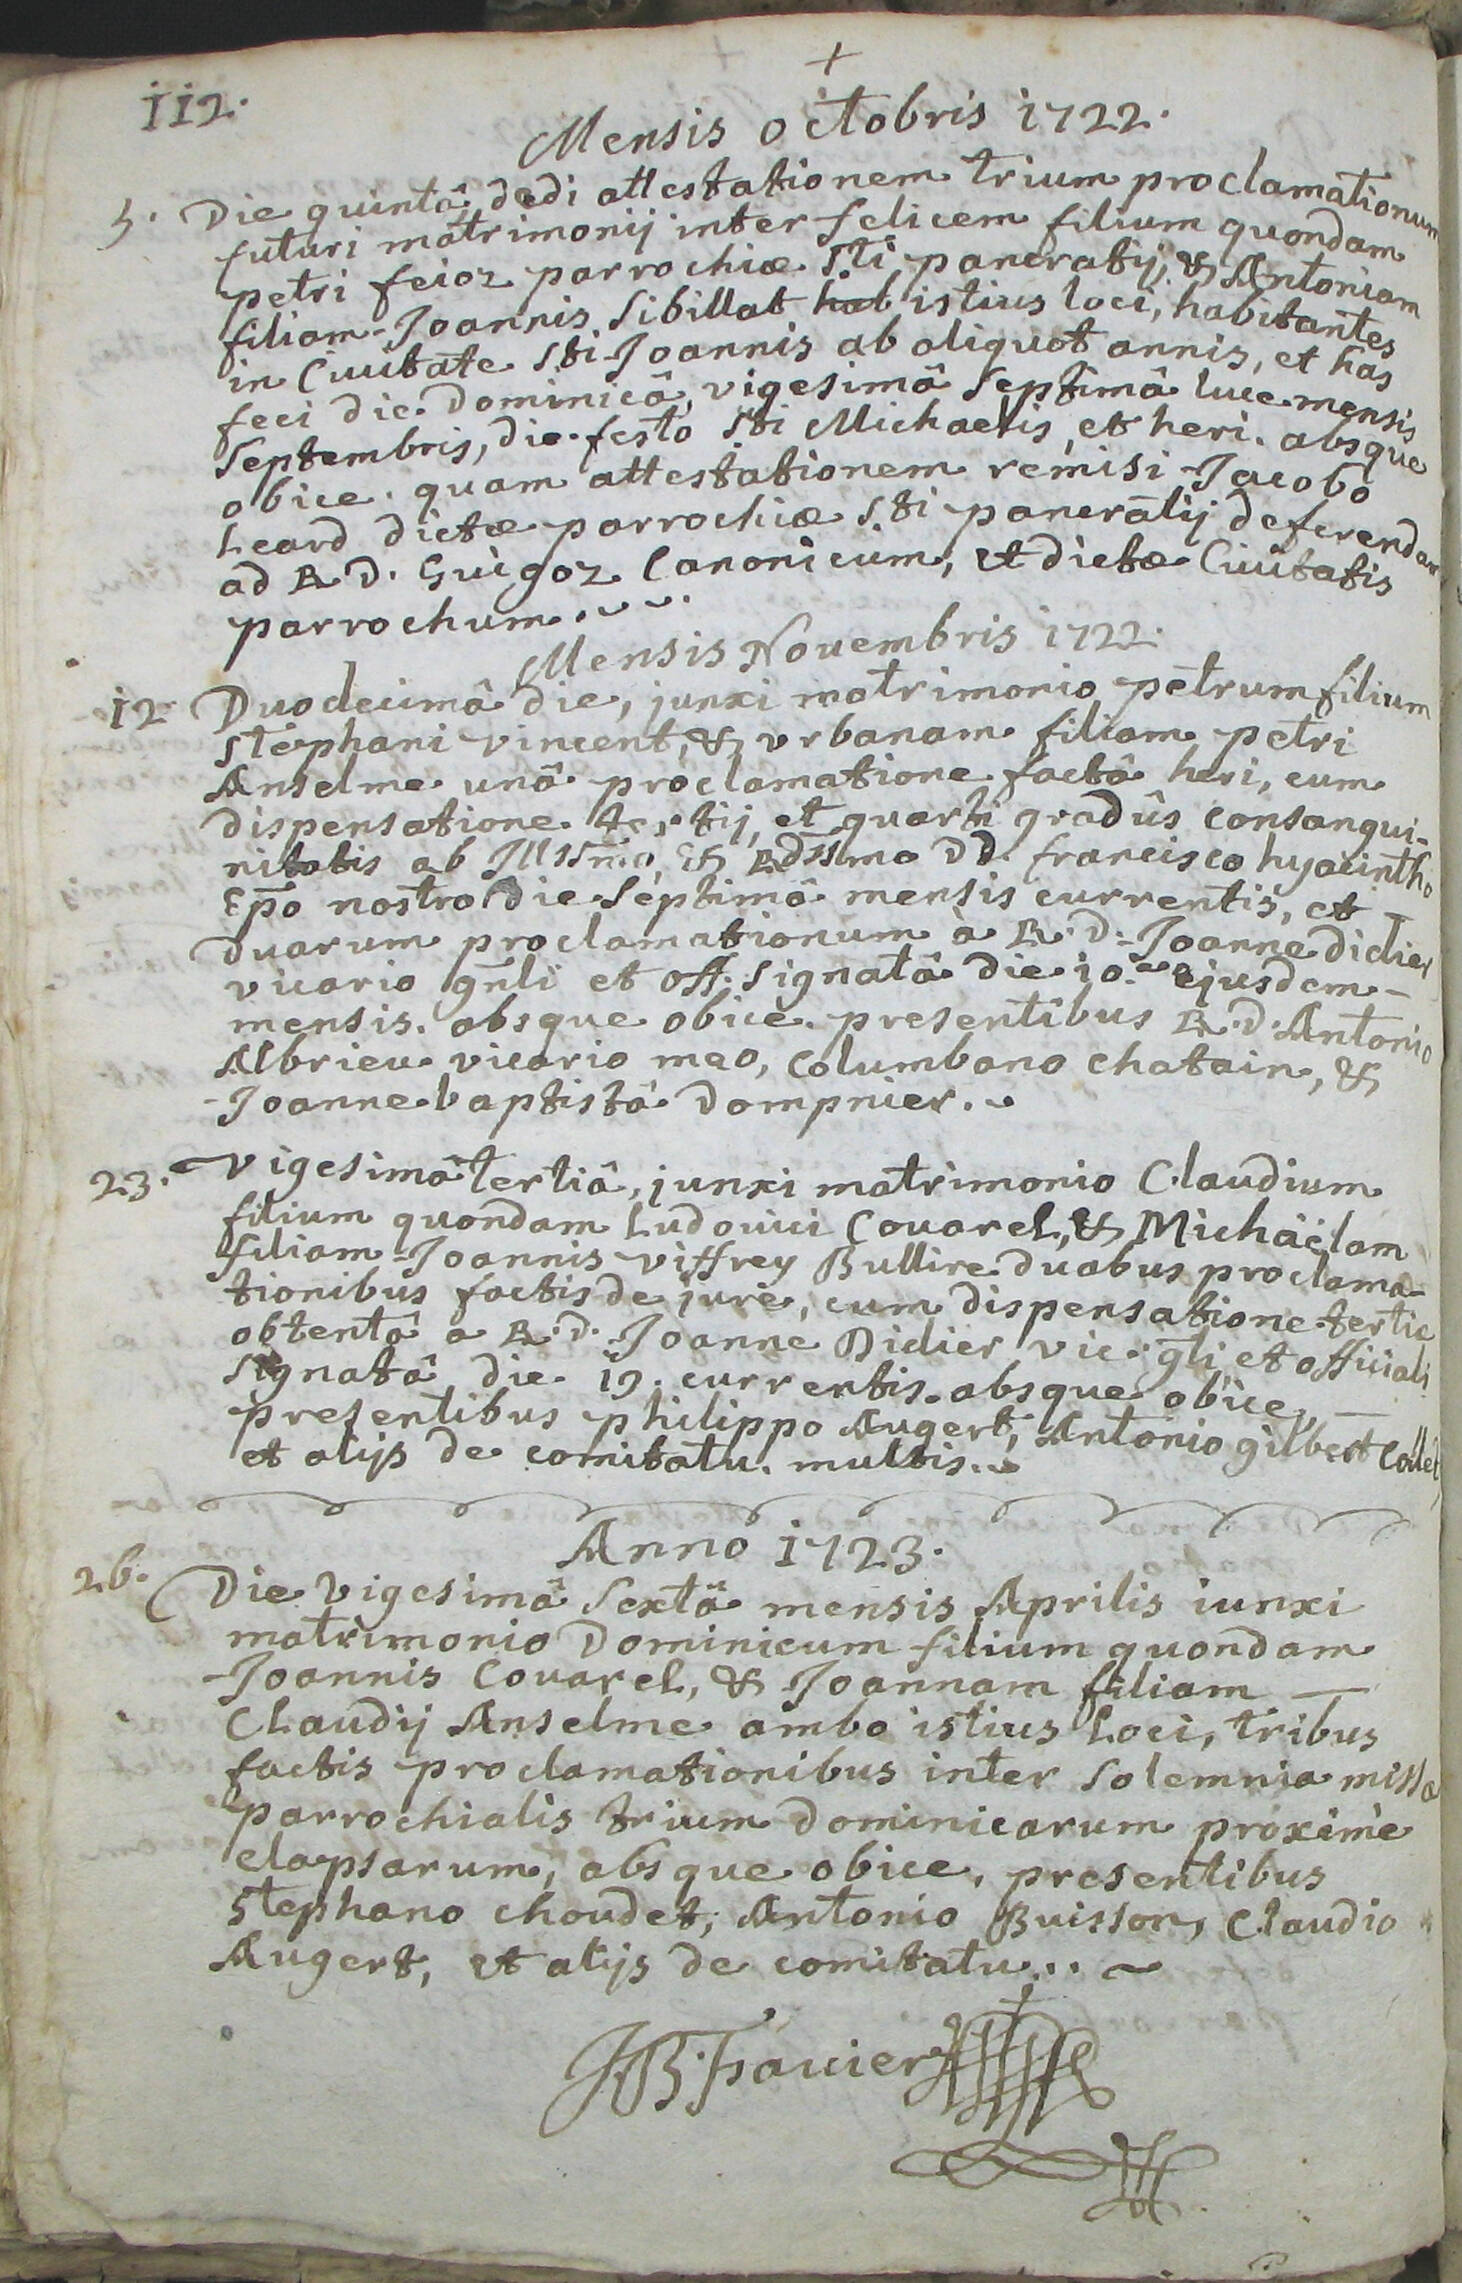 +
112.
Mensis octobris 1722.
5. Die quintâ, dedi attestationem trium proclamationum
futuri matrimonij inter felicem filium quondam
petri feioz parrochiæ Sti pancratij, & Antoniam
filiam Joannis Sibillat hab istius loci, habitantes
in Civitate Sti Joannis ab aliquot annis, et has
feci die Dominicâ, vigesimâ Septimâ luce mensis
Septembris, die festo Sti Michaelis, et heri. absque
obice. quam attestationem remisi Jacobo
Leard dictæ parrochiæ Sti pancratij deferendam
ad R D. Guigoz Canonicum, et dictæ Civitatis
parrochum.
Mensis Novembris 1722.
12 Duodecimâ die, junxi matrimonio petrum filium
Stephani vincent, & vrbanam filiam petri
Anselme unâ proclamatione factâ heri, cum
dispensatione tertij, et quarti gradûs consangui-
nitatis ab Illssmo, & Rdssmo DD. francisco hyacintho
Epo nostro die Septimâ mensis currentis, et
duarum proclamationum à R. D. Joanne Didier
vicario gnli et off. signatâ die 10.a ejusdem
mensis. absque obice. presentibus R. D. Antonio
Albrieu vicario meo, Columbano chatain, &
Joanne baptistâ Dompnier.
23. Vigesimâ tertiâ, junxi matrimonio Claudium
filium quondam Ludovici Covarel, & Michäelam
filiam Joannis Viffrey Bullire duabus proclama-
tionibus factis de jure, cum dispensatione tertie
obtentâ a R. D. Joanne Didier vic. gli et officiali
signatâ die 19. currentis. absque obice,
presentibus philippo Augert, Antonio gilbert Collet,
et alijs de comitatu. multis.
Anno 1723.
26. Die Vigesimâ Sextâ mensis Aprilis iunxi
matrimonio Dominicum filium quondam
Joannis Covarel, & Joannam filiam
Claudij Anselme ambo istius Loci, tribus
factis proclamationibus inter Solemnia missæ
parrochialis trium Dominicarum proximè
elapsarum, absque obice, presentibus
Stephano choudet, Antonio Buisson, Claudio
Augert, et alijs de comitatu..
JB. Favier